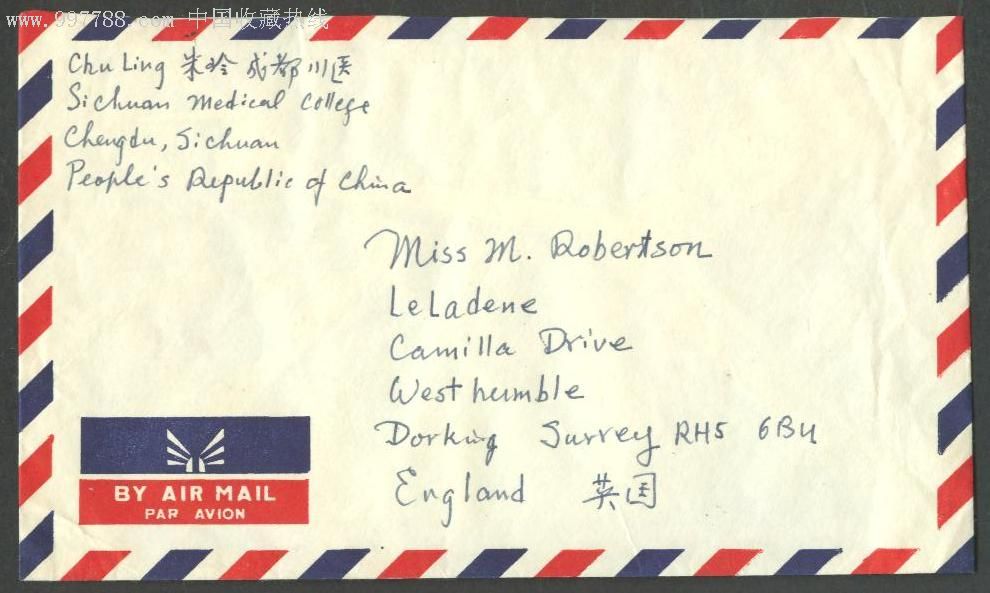 www.997788.com 中国收藏热线
Chu Ling 朱玲 成都川医
Sichuan Medical College
Chengdu, Sichuan
People's Republic of China
Miss M. Robertson
LeLadene
Camilla Drive
Westhumble
Dorking Surrey RH5 6BU
England 英国
BY AIR MAIL
PAR AVION